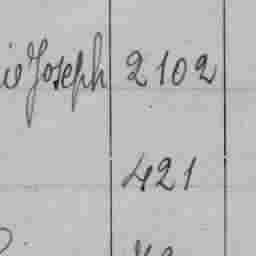 Joseph 2102
421